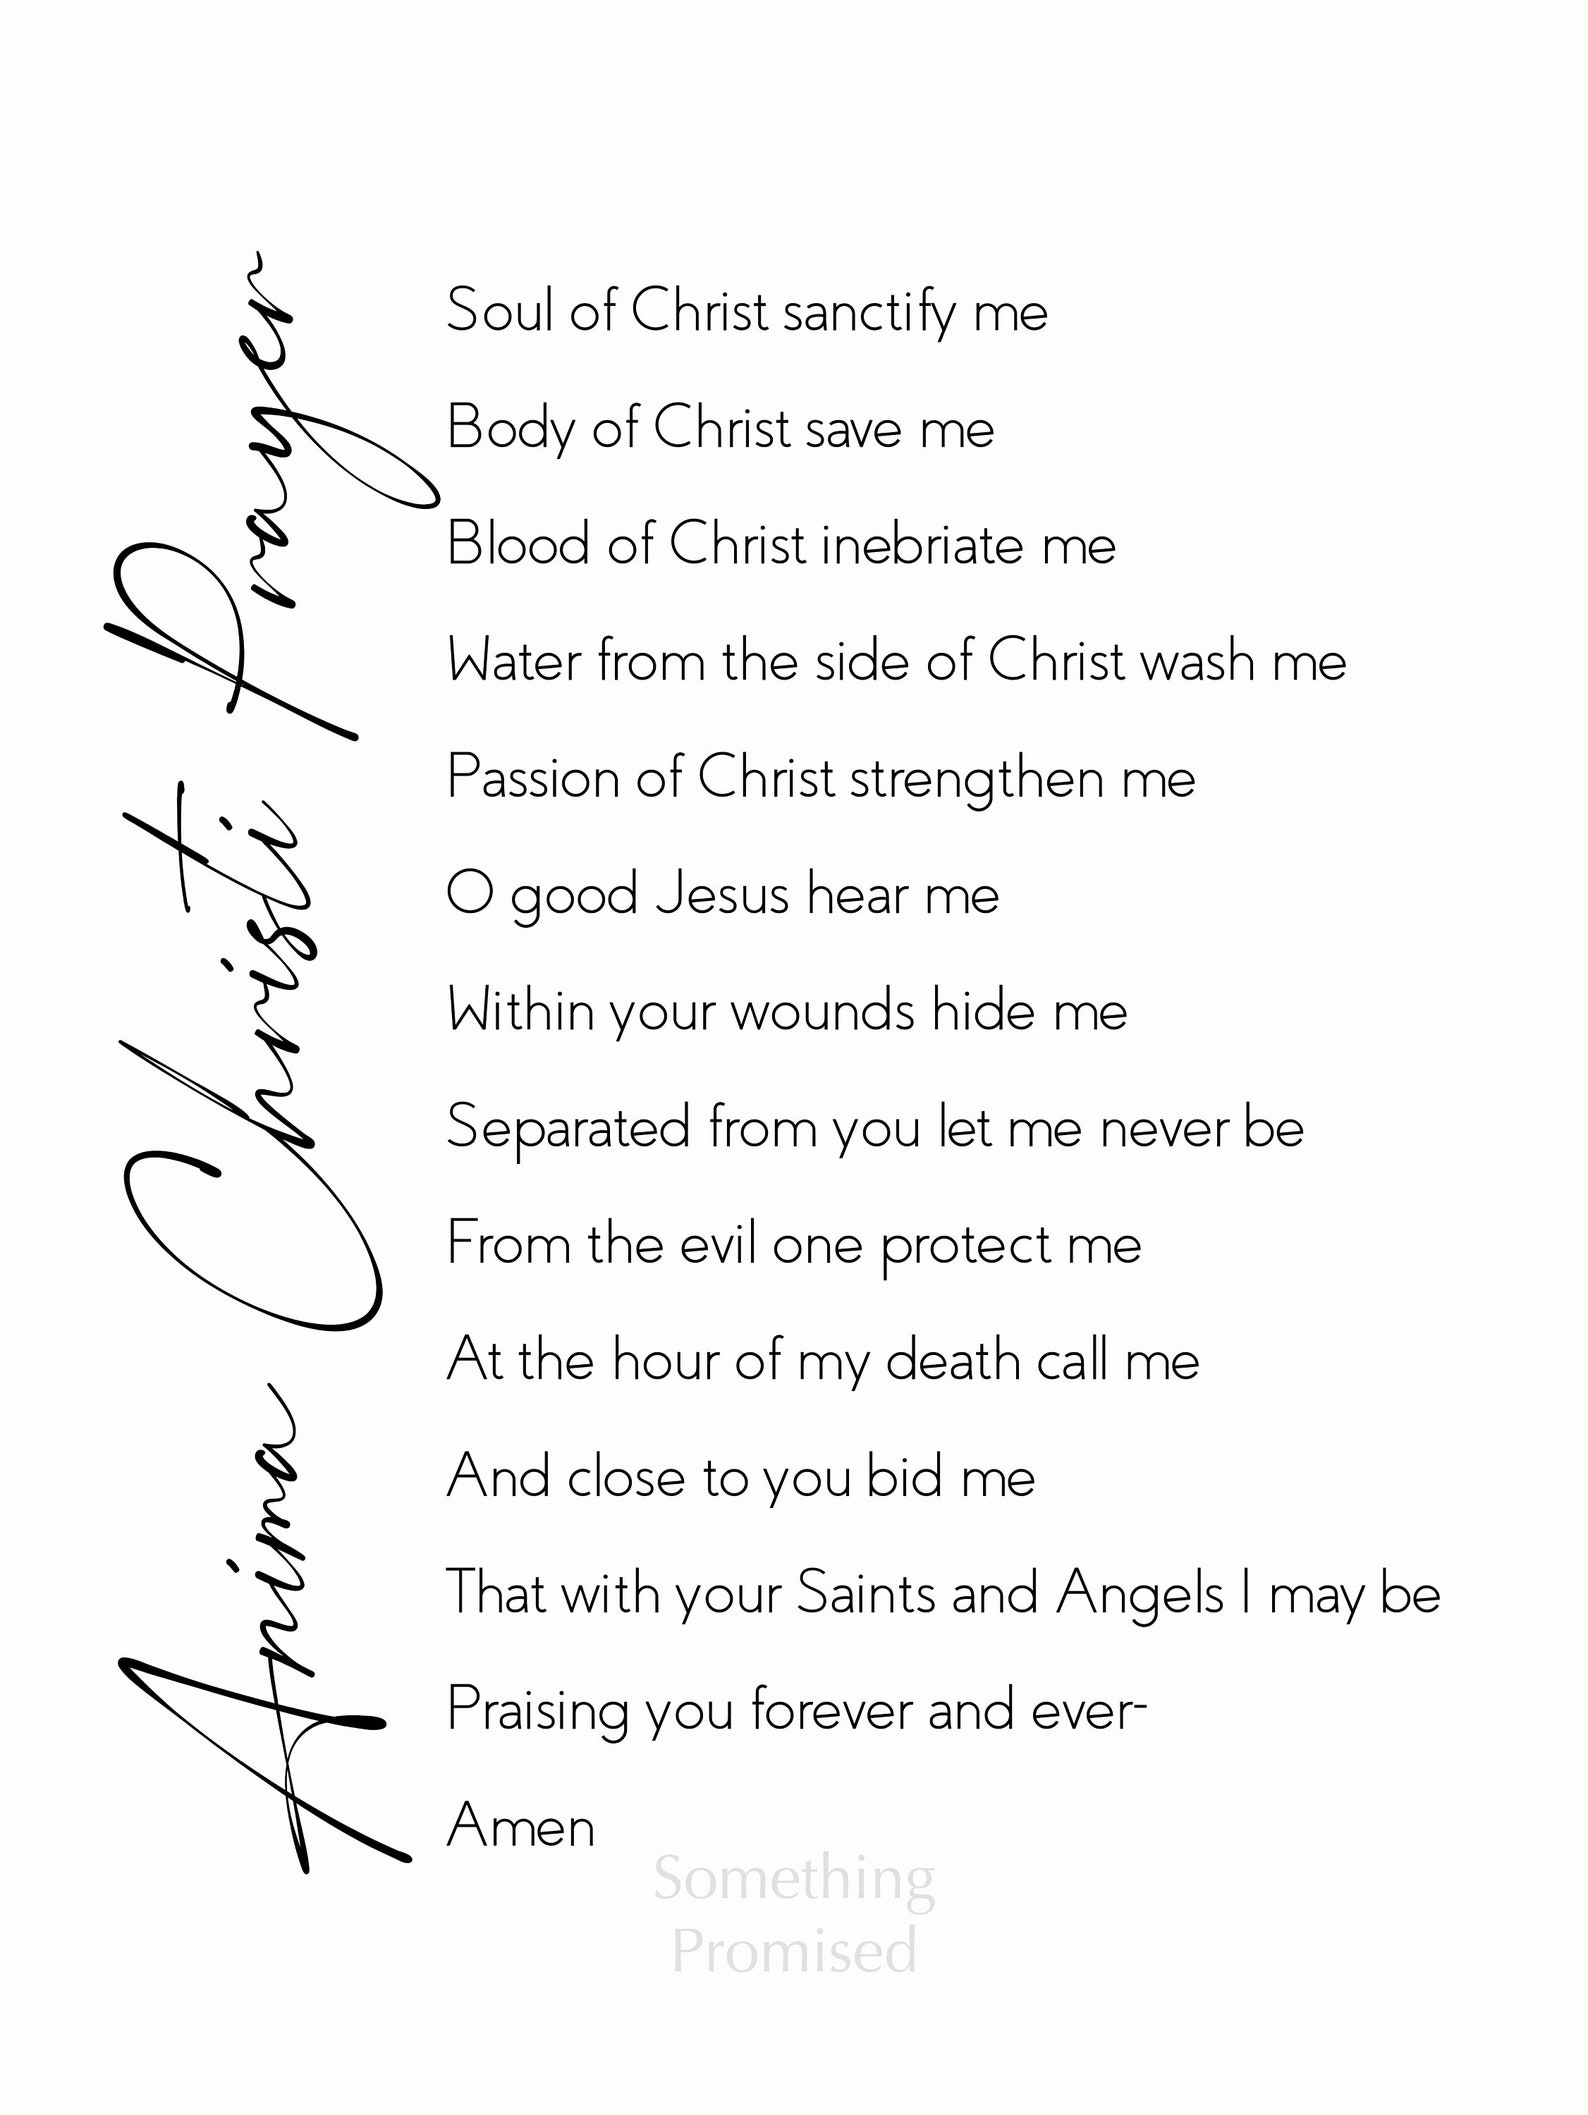 Anima Christi Prayer
Soul of Christ sanctify me
Body of Christ save me
Blood of Christ inebriate me
Water from the side of Christ wash me
Passion of Christ strengthen me
O good Jesus hear me
Within your wounds hide me
Separated from you let me never be
From the evil one protect me
At the hour of my death call me
And close to you bid me
That with your Saints and Angels I may be
Praising you forever and ever-
Amen
Something
Promised